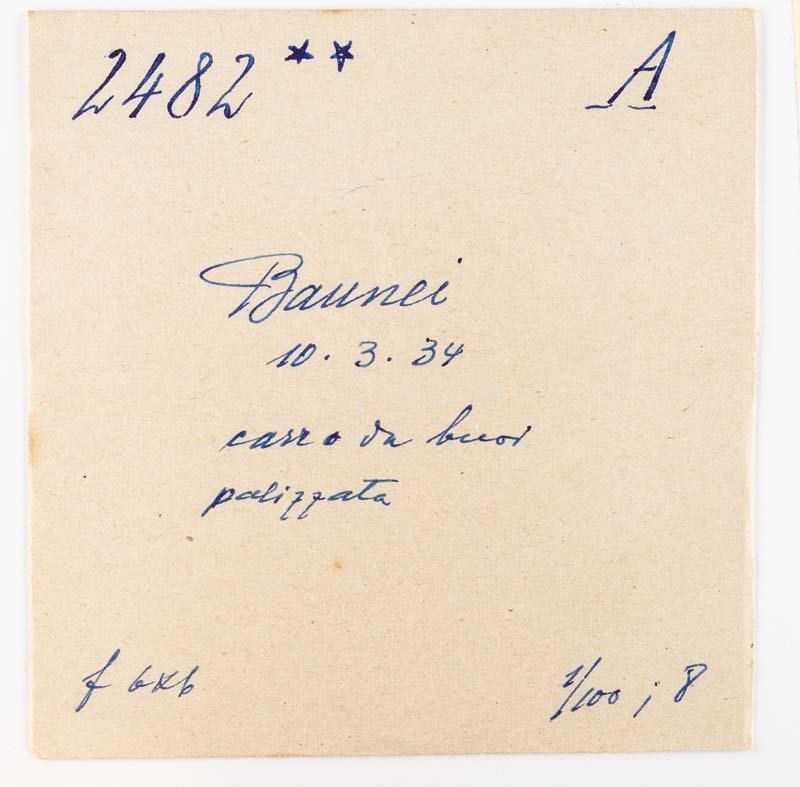 2482 ** A
Baunei
10.3.34
carro da buoi
palizzata
f 6x6 1/100 ; 8